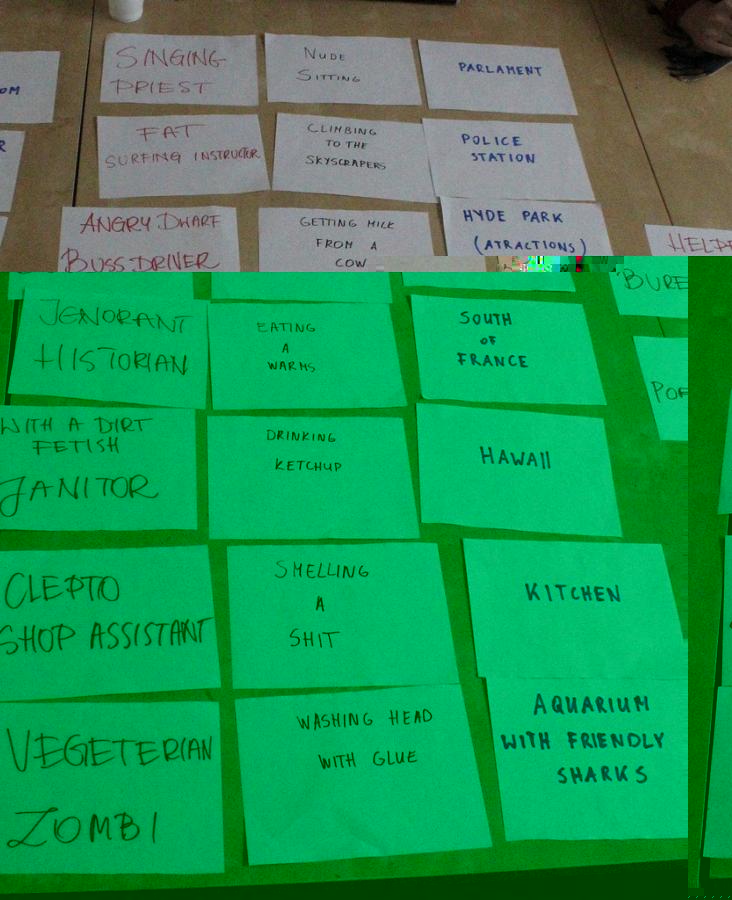 SINGING
PRIEST
NUDE
SITTING
PARLAMENT
OM
FAT
SURFING INSTRUCTOR
CLIMBING
TO THE
SKYSCRAPERS
POLICE
STATION
R
ANGRY DWARF
BUSS DRIVER
GETTING MILK
FROM A
COW
HYDE PARK
(ATRACTIONS)
HELP
BURE
JENORANT
HISTORIAN
EATING
A
WARMS
SOUTH
OF
FRANCE
WITH A DIRT
FETISH
JANITOR
DRINKING
KETCHUP
HAWAII
CLEPTO
SHOP ASSISTANT
SMELLING
A
SHIT
KITCHEN
VEGETERIAN
ZOMBI
WASHING HEAD
WITH GLUE
AQUARIUM
WITH FRIENDLY
SHARKS